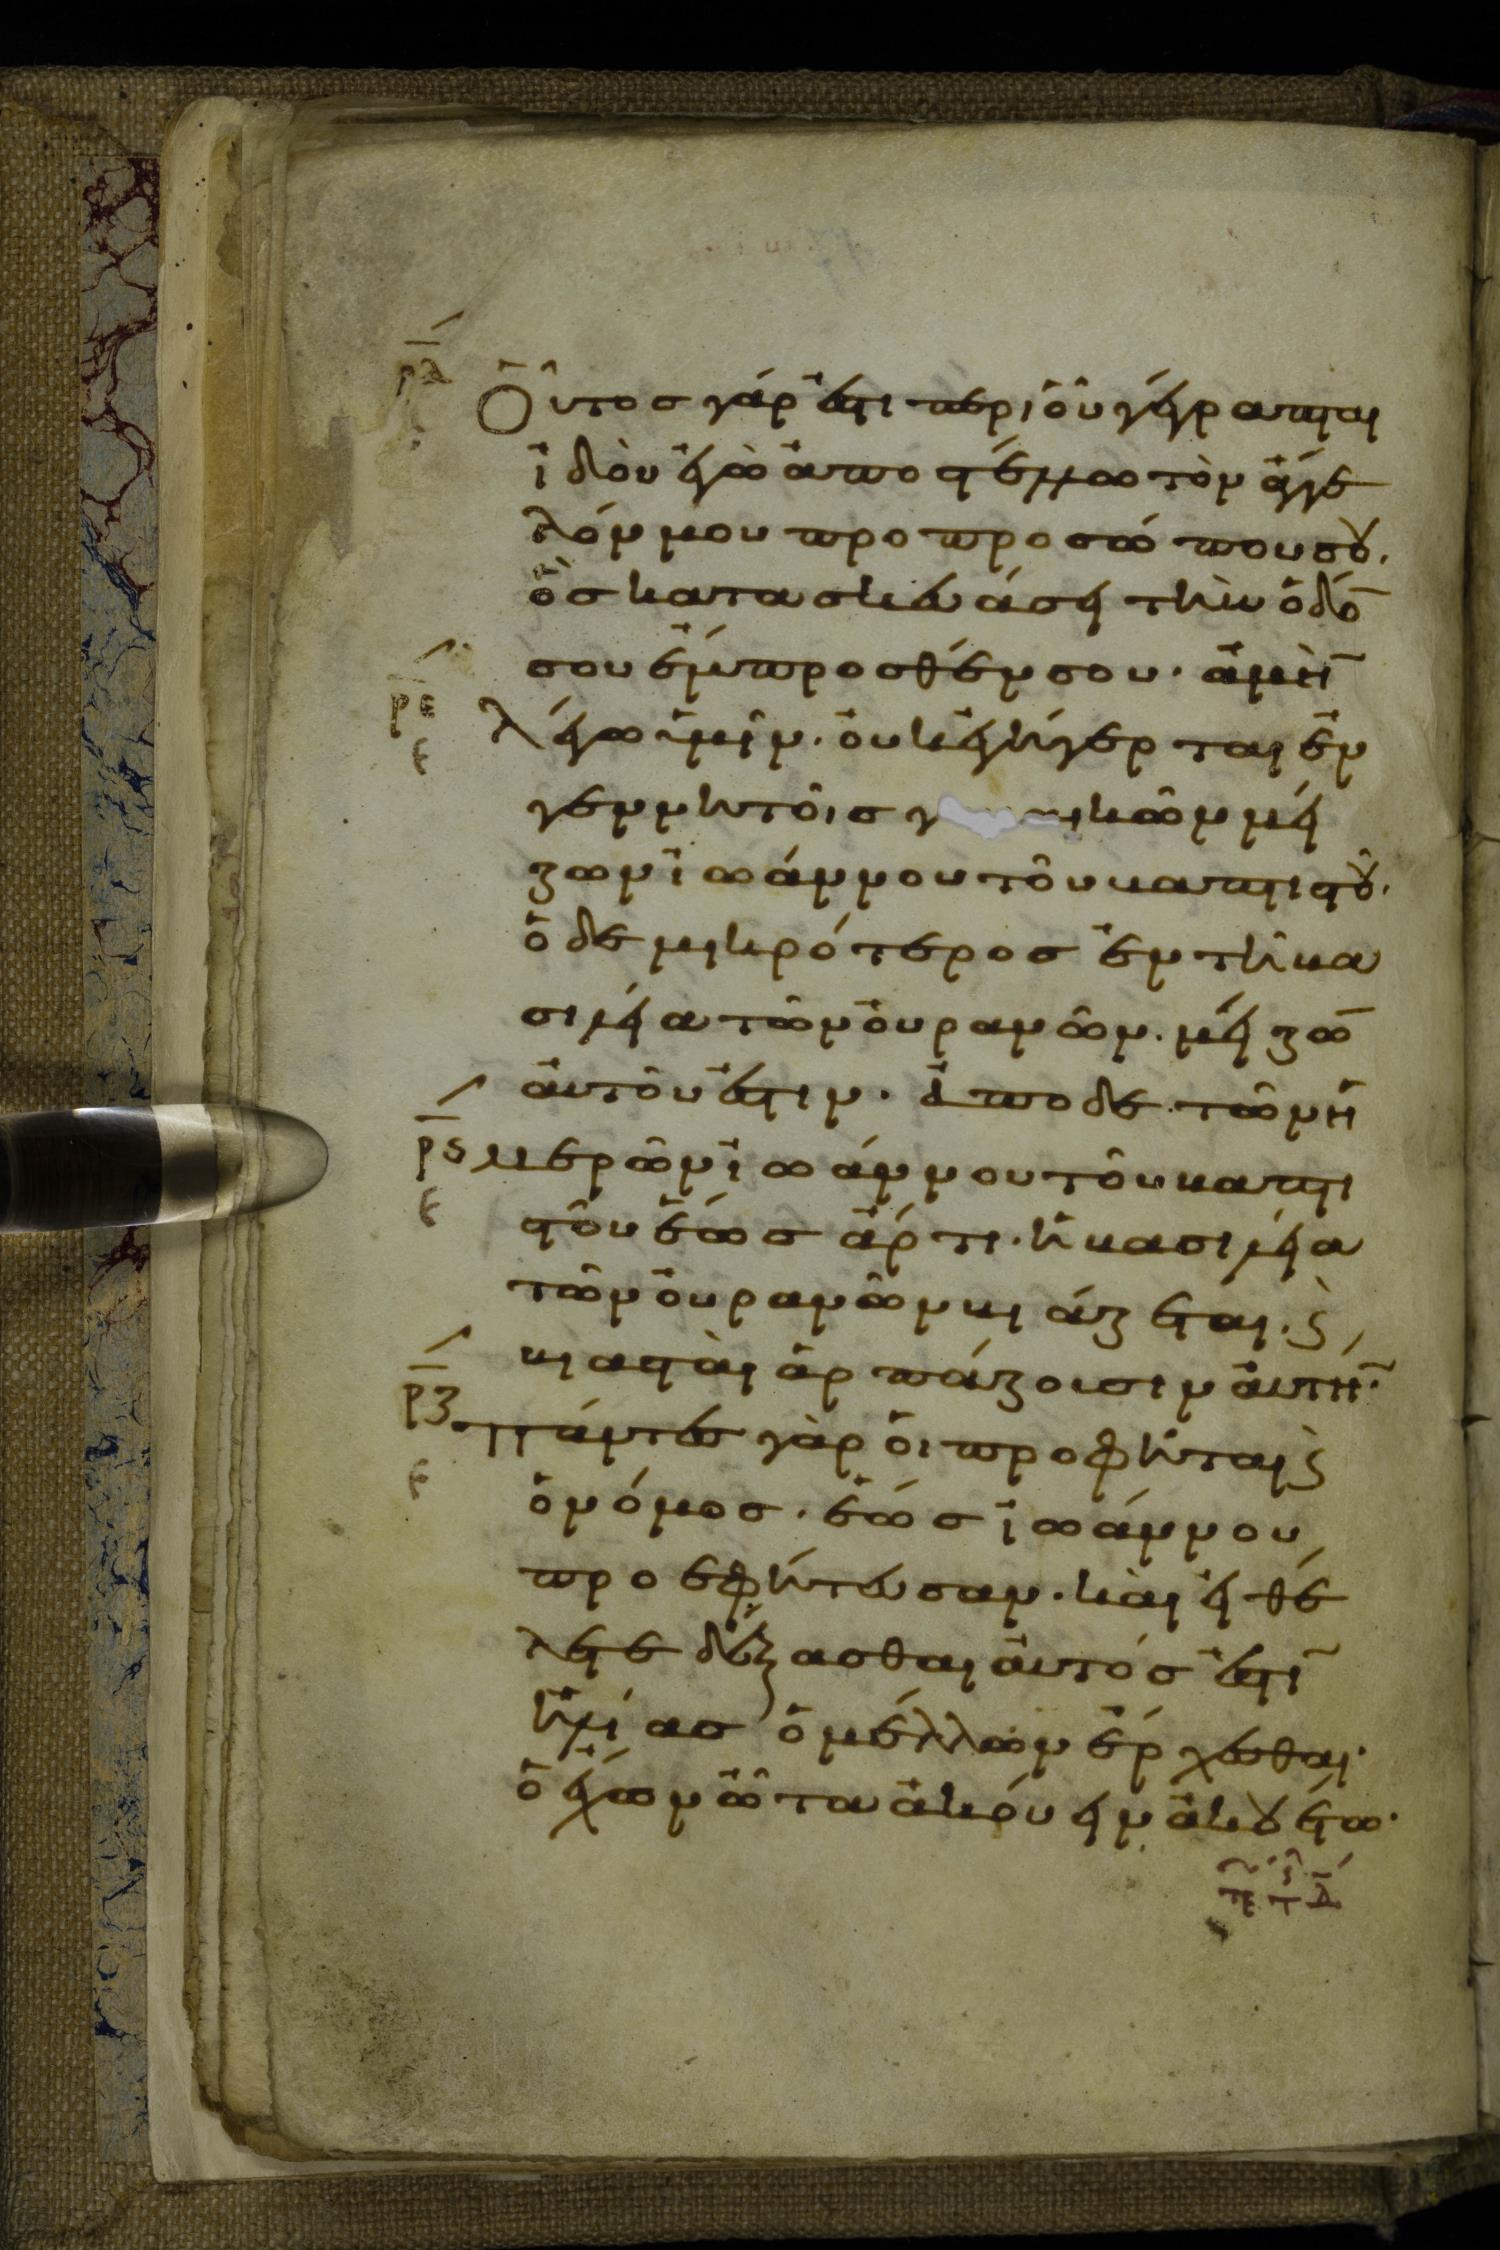 ρδ
Οὗτοσ γάρ ἐστι περι οὗ γέγραπται
ἰδοὺ ἐγὼ ἀποστέλλω τὸν ἄγγε
λόν μου προ προσώπου σου.
ὃσ κατασκευάσει τὴν ὁδό̄
σου ἔμπροσθέν σου. ἀμὴ̄
ρε
λέγω ὑμῖν. οὐκ ἐγήγερται ἐν
ε
γεννητοῖσ γ υναικῶν μεί
ζων ἰωάννου τοῦ βαπτιστοῦ.
ὁ δε μικρότεροσ ἐν τῆ βα
σιλεία τῶν οὐρανῶν. μείζω̄
ἀυτοῦ ἐστιν. ἀπο δε τῶν ἡ
ρϛ μερῶν ἰωάννου τοῦ βαπτι
ε
στοῦ ἕωσ ἄρτι. ἡ βασιλεία
τῶν οὐρανῶν βιάζεται. ϗ
βιασταὶ ἁρπάζουσιν ἀυτὴ̄.
ρζ
πάντεσ γὰρ ὁι προφῆται ϗ
ε
ὁ νόμοσ. ἕωσ ἰωάννου
προεφήτευσαν. καὶ εἰ θέ
λετε δέξασθαι ἀυτόσ ἐστῑ
ἠλίασ ὁ μέλλων ἔρχεσθαι.
ὁ ἔχων ὦτα ἀκούειν ἀκουέτω.
τε τ Δ